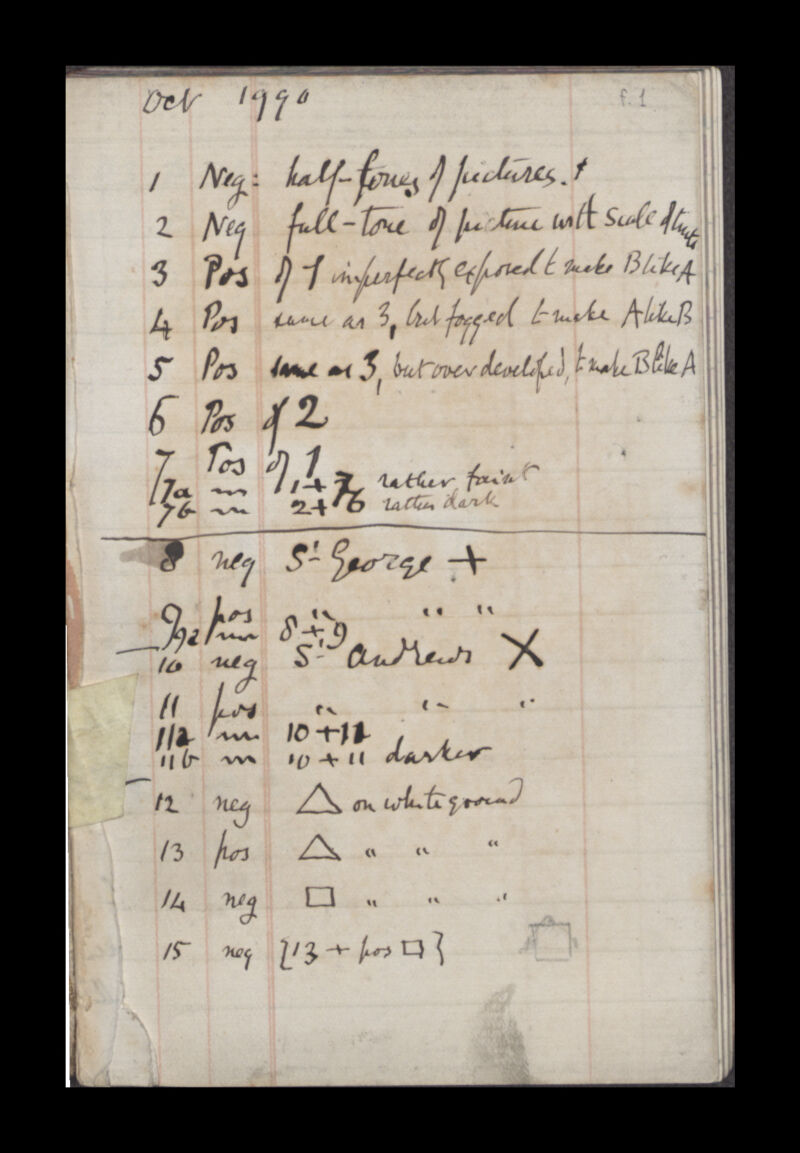 Oct 1990 f. 1
1 Neg: half-tones of pictures. +
2 Neg full-tone of picture with scale of tints
3 Pos of 1 imperfectly exposed to make B like A
4 Pos same as 3, but fogged to make A like B
5 Pos same as 3, but over developed, to make B like A
6 Pos of 2
7 Pos of 1
7a " 1+7 rather faint
7b " 2+6 rather dark
8 neg St George +
9 pos " " "
9a " 8+9
10 neg St Andrews X
11 pos " " "
11a " 10+11
11b " 10+11 darker
12 neg △ on white ground
13 pos △ " " "
14 neg □ " " "
15 neg {13 + pos □}